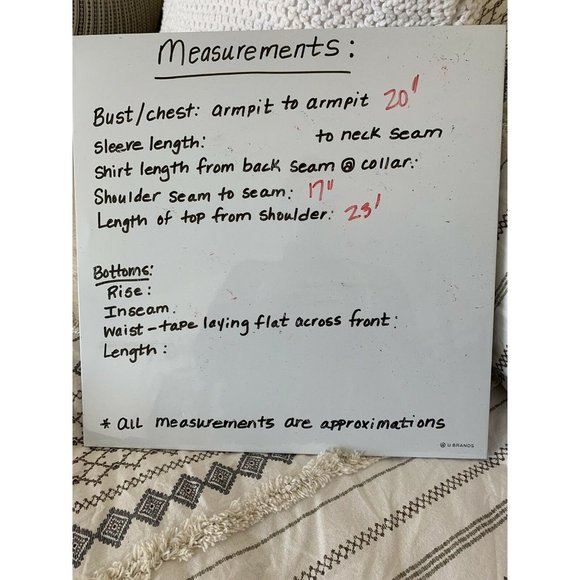 Measurements:
Bust/chest: armpit to armpit 20"
Sleeve length: to neck seam
Shirt length from back seam @ collar:
Shoulder seam to seam: 17"
Length of top from shoulder: 23"
Bottoms:
Rise:
Inseam.
Waist-tape laying flat across front:
Length:
* all measurements are approximations
U BRANDS